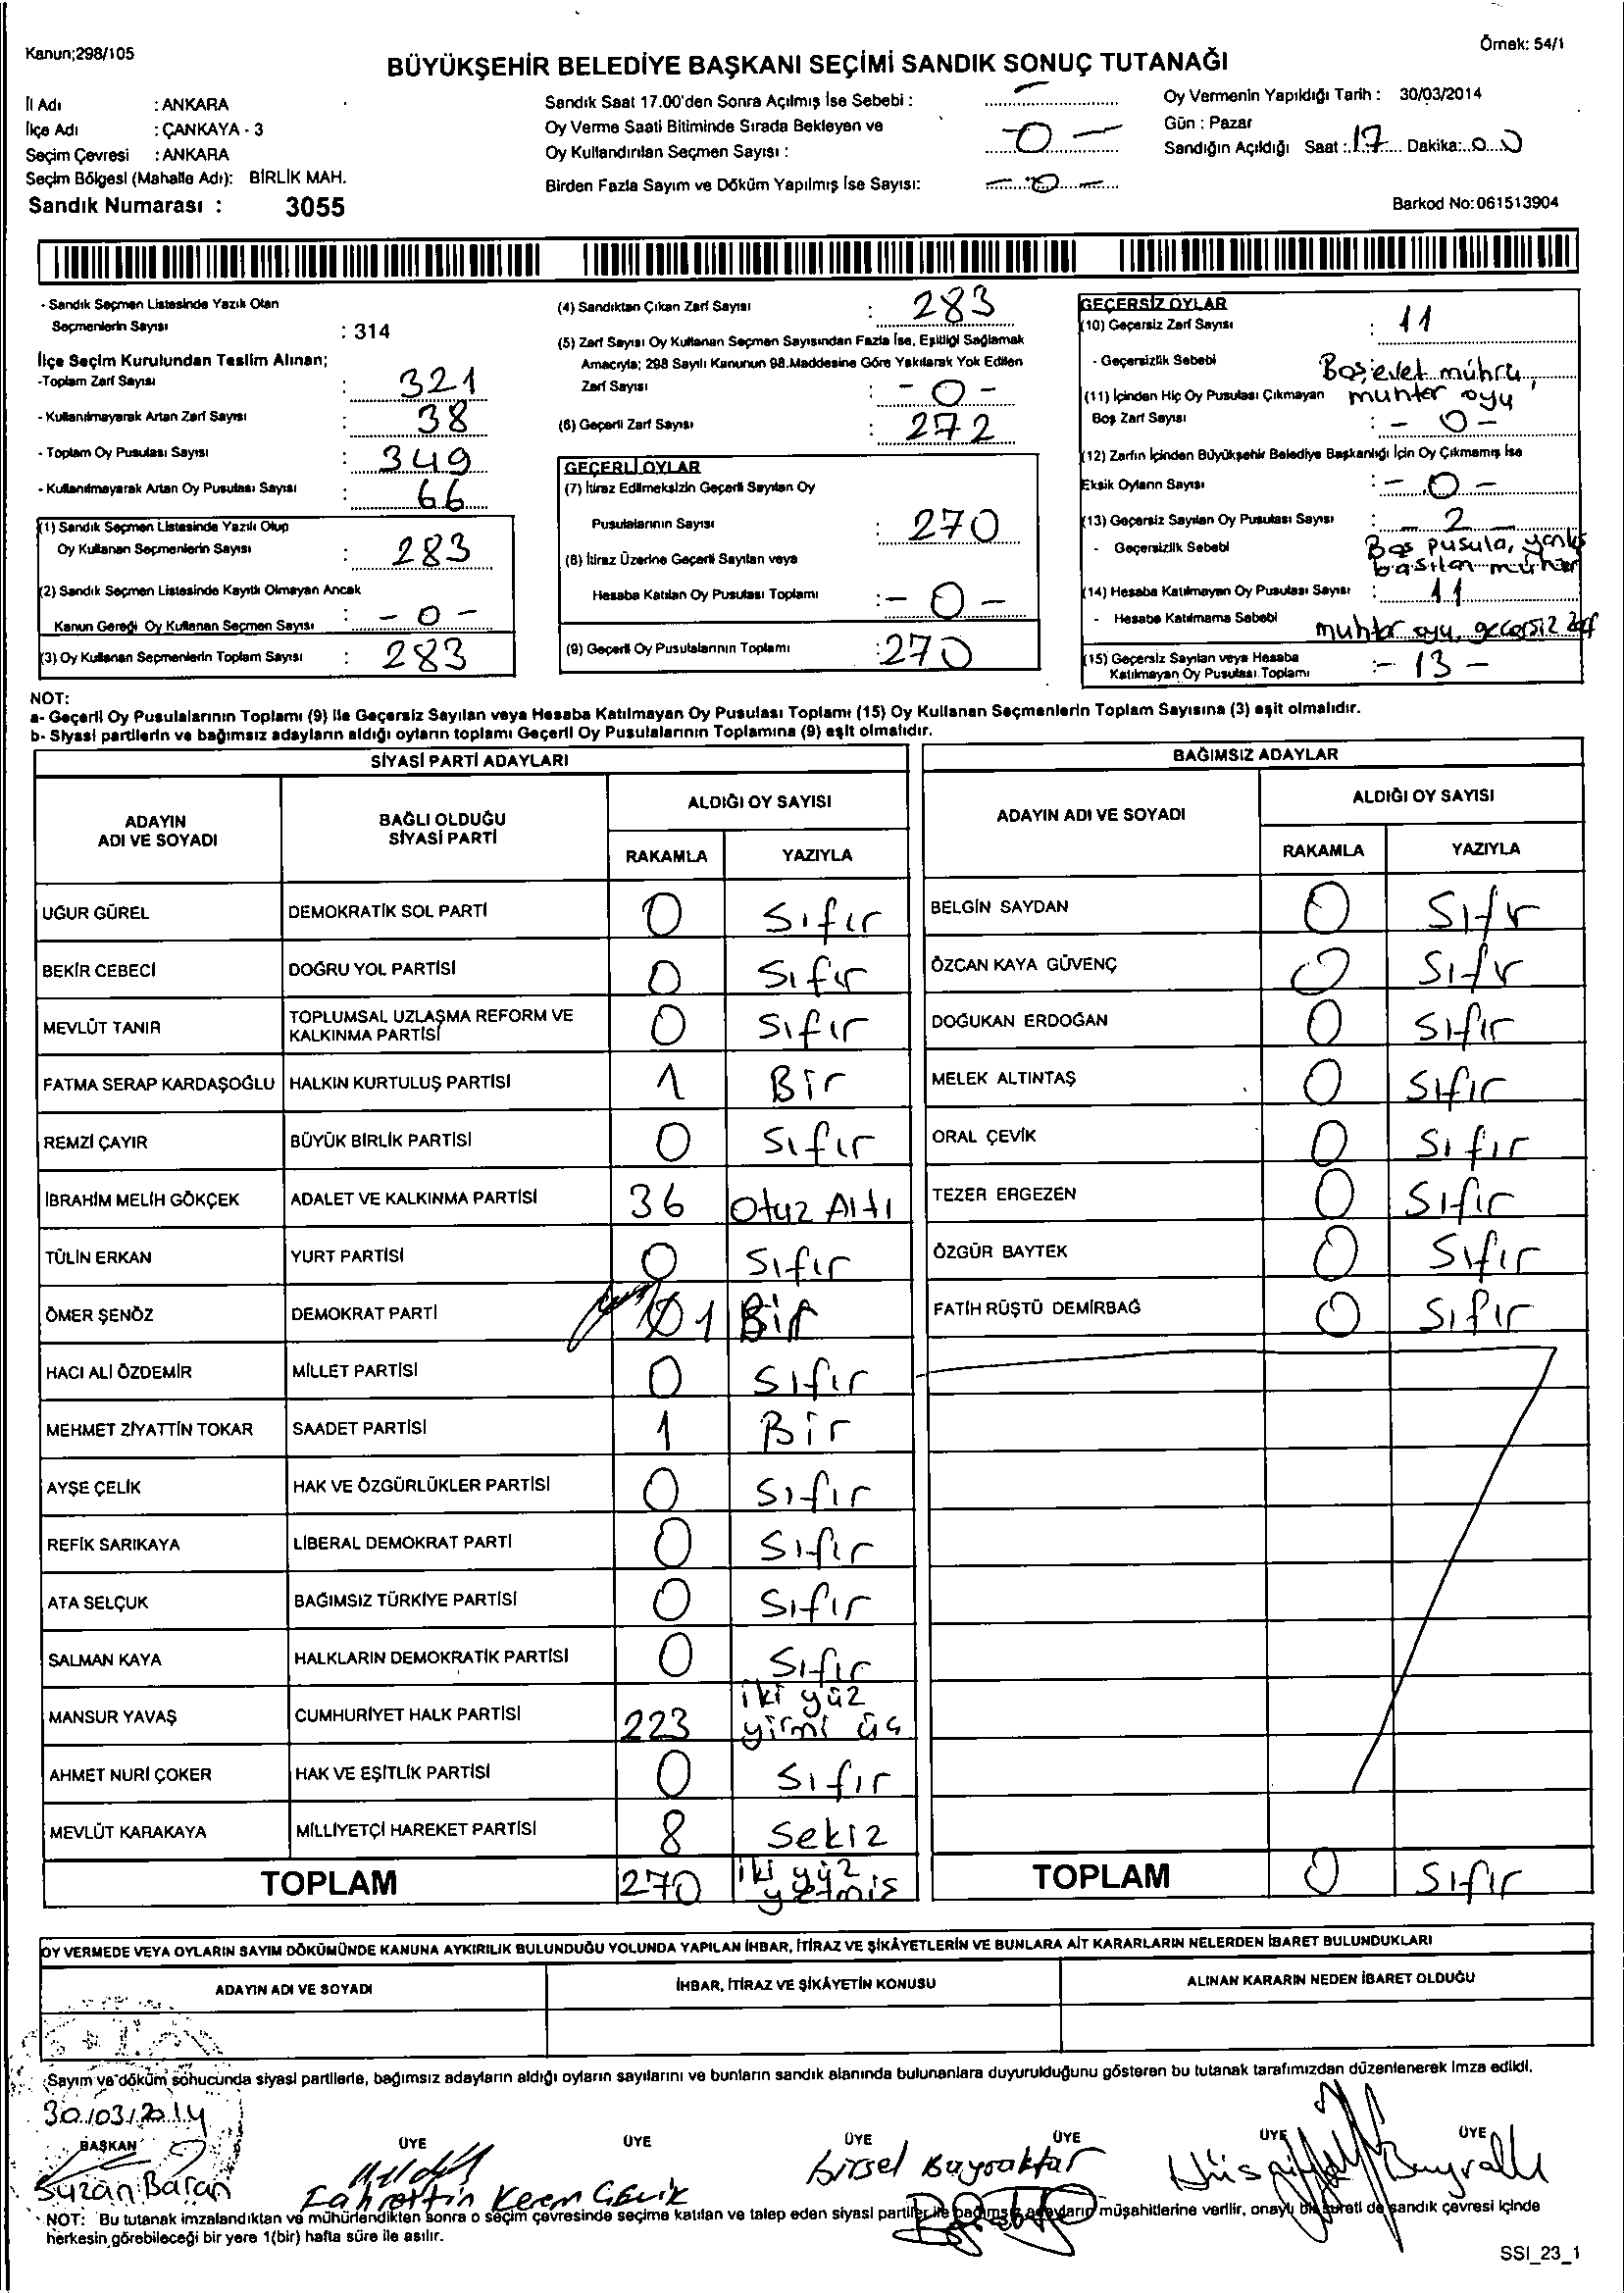 Kanun;298/105
Örnek: 54/1
BÜYÜKŞEHİR BELEDİYE BAŞKANI SEÇİMİ SANDIK SONUÇ TUTANAĞI
İl Adı : ANKARA
İlçe Adı : ÇANKAYA - 3
Seçim Çevresi : ANKARA
Seçim Bölgesi (Mahalle Adı): BİRLİK MAH.
Sandık Numarası : 3055
Sandık Saat 17.00'den Sonra Açılmış İse Sebebi : -
Oy Verme Saati Bitiminde Sırada Bekleyen ve
Oy Kullandırılan Seçmen Sayısı : - 0 -
Birden Fazla Sayım ve Döküm Yapılmış İse Sayısı: - 0 -
Oy Vermenin Yapıldığı Tarih : 30/03/2014
Gün : Pazar
Sandığın Açıldığı Saat : 17 Dakika: 00
Barkod No:061513904
- Sandık Seçmen Listesinde Yazılı Olan
Seçmenlerin Sayısı : 314
İlçe Seçim Kurulundan Teslim Alınan;
-Toplam Zarf Sayısı : 321
- Kullanılmayarak Artan Zarf Sayısı : 38
- Toplam Oy Pusulası Sayısı : 349
- Kullanılmayarak Artan Oy Pusulası Sayısı : 66
(1) Sandık Seçmen Listesinde Yazılı Olup
Oy Kullanan Seçmenlerin Sayısı : 283
(2) Sandık Seçmen Listesinde Kayıtlı Olmayan Ancak
Kanun Gereği Oy Kullanan Seçmen Sayısı : - 0 -
(3) Oy Kullanan Seçmenlerin Toplam Sayısı : 283
(4) Sandıktan Çıkan Zarf Sayısı : 283
(5) Zarf Sayısı Oy Kullanan Seçmen Sayısından Fazla İse, Eşitliği Sağlamak
Amacıyla; 298 Sayılı Kanunun 98.Maddesine Göre Yakılarak Yok Edilen
Zarf Sayısı : - 0 -
(6) Geçerli Zarf Sayısı : 272
GEÇERLİ OYLAR
(7) İtiraz Edilmeksizin Geçerli Sayılan Oy
Pusulalarının Sayısı : 270
(8) İtiraz Üzerine Geçerli Sayılan veya
Hesaba Katılan Oy Pusulası Toplamı : - 0 -
(9) Geçerli Oy Pusulalarının Toplamı : 270
GEÇERSİZ OYLAR
(10) Geçersiz Zarf Sayısı : 11
- Geçersizlik Sebebi Boş, evet mührü,
muhtar oyu
(11) İçinden Hiç Oy Pusulası Çıkmayan
Boş Zarf Sayısı : - 0 -
(12) Zarfın İçinden Büyükşehir Belediye Başkanlığı İçin Oy Çıkmamış İse
Eksik Oyların Sayısı : - 0 -
(13) Geçersiz Sayılan Oy Pusulası Sayısı : - 2 -
- Geçersizlik Sebebi Boş pusula, yanlış
basılan mühür
(14) Hesaba Katılmayan Oy Pusulası Sayısı : 11
- Hesaba Katılmama Sebebi muhtar oyu, geçersiz zarf
(15) Geçersiz Sayılan veya Hesaba
Katılmayan Oy Pusulası Toplamı : - 13 -
NOT:
a- Geçerli Oy Pusulalarının Toplamı (9) ile Geçersiz Sayılan veya Hesaba Katılmayan Oy Pusulası Toplamı (15) Oy Kullanan Seçmenlerin Toplam Sayısına (3) eşit olmalıdır.
b- Siyasi partilerin ve bağımsız adayların aldığı oyların toplamı Geçerli Oy Pusulalarının Toplamına (9) eşit olmalıdır.
SİYASİ PARTİ ADAYLARI
ADAYIN ADI VE SOYADI BAĞLI OLDUĞU SİYASİ PARTİ ALDIĞI OY SAYISI
RAKAMLA YAZIYLA
UĞUR GÜREL DEMOKRATİK SOL PARTİ 0 Sıfır
BEKİR CEBECİ DOĞRU YOL PARTİSİ 0 Sıfır
MEVLÜT TANIR TOPLUMSAL UZLAŞMA REFORM VE KALKINMA PARTİSİ 0 Sıfır
FATMA SERAP KARDAŞOĞLU HALKIN KURTULUŞ PARTİSİ 1 Bir
REMZİ ÇAYIR BÜYÜK BİRLİK PARTİSİ 0 Sıfır
İBRAHİM MELİH GÖKÇEK ADALET VE KALKINMA PARTİSİ 36 Otuz Altı
TÜLİN ERKAN YURT PARTİSİ 0 Sıfır
ÖMER ŞENÖZ DEMOKRAT PARTİ 1 Bir
HACI ALİ ÖZDEMİR MİLLET PARTİSİ 0 Sıfır
MEHMET ZİYATTİN TOKAR SAADET PARTİSİ 1 Bir
AYŞE ÇELİK HAK VE ÖZGÜRLÜKLER PARTİSİ 0 Sıfır
REFİK SARIKAYA LİBERAL DEMOKRAT PARTİ 0 Sıfır
ATA SELÇUK BAĞIMSIZ TÜRKİYE PARTİSİ 0 Sıfır
SALMAN KAYA HALKLARIN DEMOKRATİK PARTİSİ 0 Sıfır
MANSUR YAVAŞ CUMHURİYET HALK PARTİSİ 223 iki yüz yirmi üç
AHMET NURİ ÇOKER HAK VE EŞİTLİK PARTİSİ 0 Sıfır
MEVLÜT KARAKAYA MİLLİYETÇİ HAREKET PARTİSİ 8 Sekiz
TOPLAM 270 iki yüz yetmiş
BAĞIMSIZ ADAYLAR
ADAYIN ADI VE SOYADI ALDIĞI OY SAYISI
RAKAMLA YAZIYLA
BELGİN SAYDAN 0 Sıfır
ÖZCAN KAYA GÜVENÇ 0 Sıfır
DOĞUKAN ERDOĞAN 0 Sıfır
MELEK ALTINTAŞ 0 Sıfır
ORAL ÇEVİK 0 Sıfır
TEZER ERGEZEN 0 Sıfır
ÖZGÜR BAYTEK 0 Sıfır
FATİH RÜŞTÜ DEMİRBAĞ 0 Sıfır
TOPLAM 0 Sıfır
OY VERMEDE VEYA OYLARIN SAYIM DÖKÜMÜNDE KANUNA AYKIRILIK BULUNDUĞU YOLUNDA YAPILAN İHBAR, İTİRAZ VE ŞİKÂYETLERİN VE BUNLARA AİT KARARLARIN NELERDEN İBARET BULUNDUKLARI
ADAYIN ADI VE SOYADI İHBAR, İTİRAZ VE ŞİKÂYETİN KONUSU ALINAN KARARIN NEDEN İBARET OLDUĞU
Sayım ve döküm sonucunda siyasi partilerle, bağımsız adayların aldığı oyların sayılarını ve bunların sandık alanında bulunanlara duyurulduğunu gösteren bu tutanak tarafımızdan düzenlenerek imza edildi.
30/03/2014
BAŞKAN ÜYE ÜYE ÜYE ÜYE ÜYE ÜYE
Suzan Baran Fahrettin Kerem Çelik Birsel Bayraktar
NOT: Bu tutanak imzalandıktan ve mühürlendikten sonra o seçim çevresinde seçime katılan ve talep eden siyasi partiler ile bağımsız adayların müşahitlerine verilir, onaylı bir sureti de sandık çevresi içinde
herkesin görebileceği bir yere 1(bir) hafta süre ile asılır.
SSI_23_1